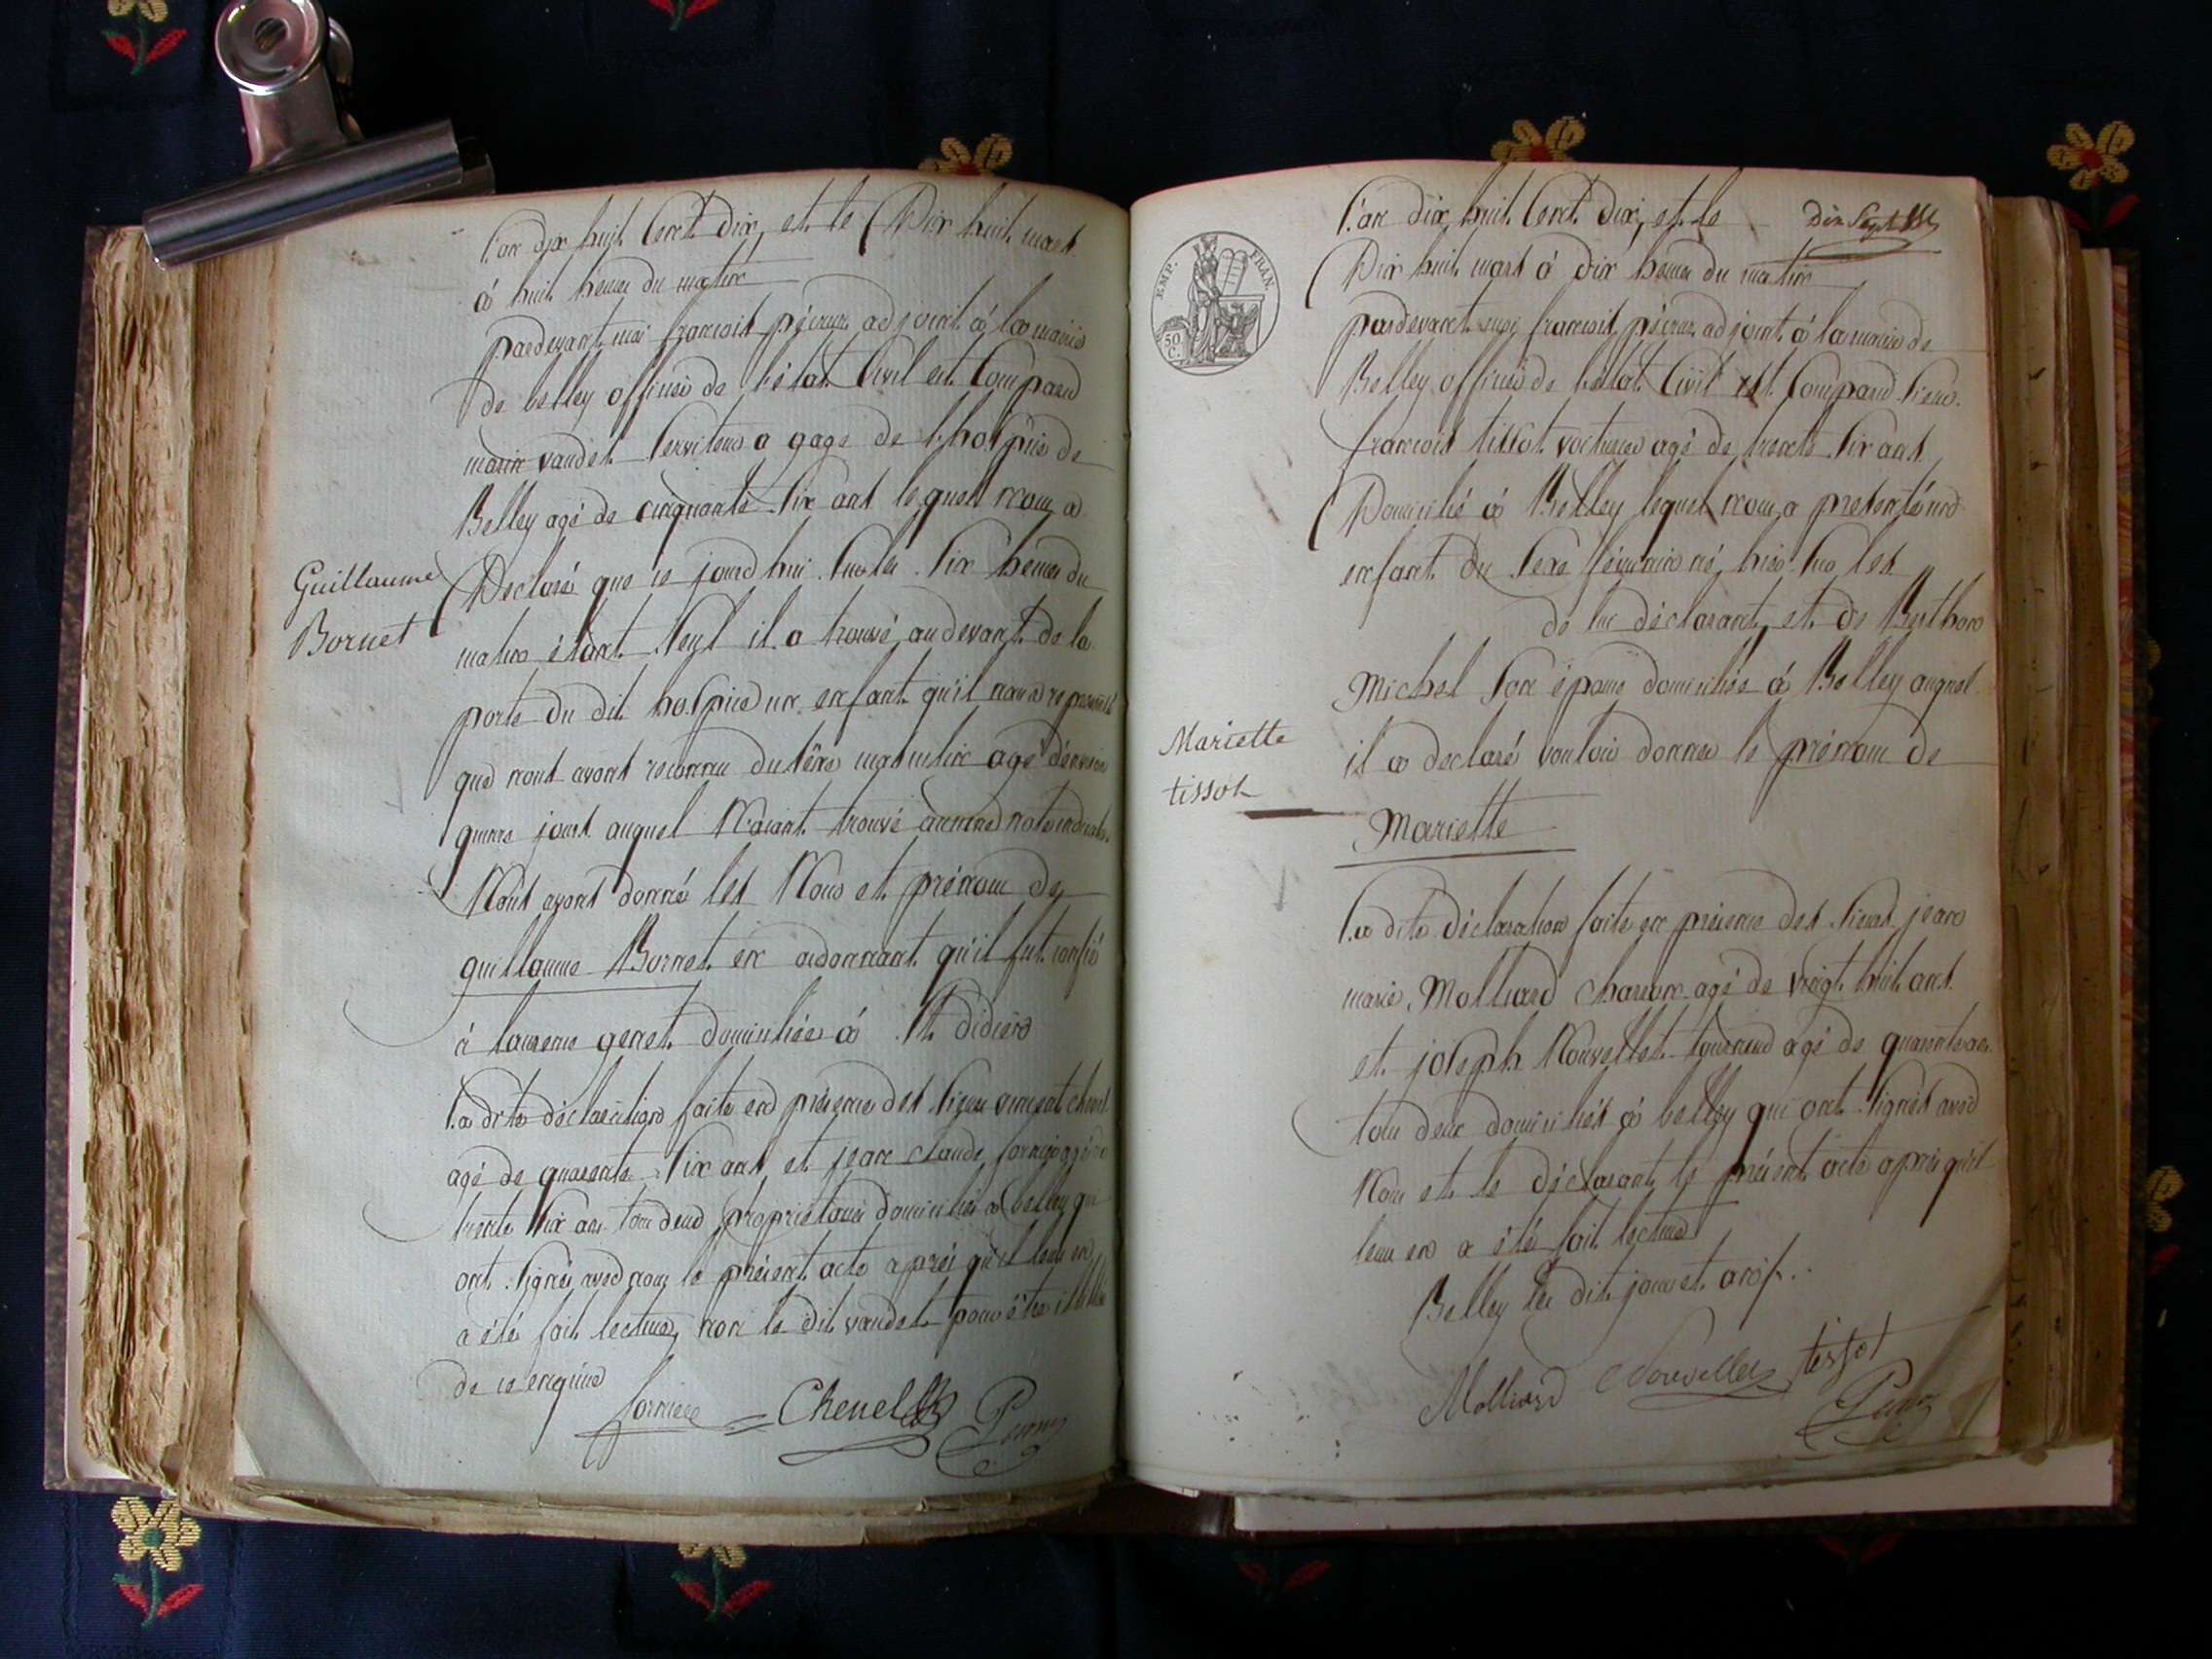 L'an dix huit Cent dix, et le Dix huit mars
à huit heures du matin
pardevant moi françois adjoint à la mairie
de belley officier de l'état Civil est Comparu
marin vaudet Serviteur a gage de l'hospice de
Belley agé de cinquante Six ans lequel nous a
Guillaume
Bornet
Declaré que ce jourd'hui Sur les Six heures du
matin étant Seul il a trouvé au devant de la
porte du dit hospice un enfant qu'il nous a représenté
que nous avons reconnu du sèxe masculin agé d'environ
quinze jours auquel N'aiant trouvé aucune note indicative
Nous avons donné les Nom et prénom de
guillaume Bornet en ordonnant qu'il fut confié
à laurence genet domiciliée à St. didier
La dite déclaration faite en présence des Sieurs vincent
agé de quarente Six ans et jean claude agé de
trente Six ans tous deux propriétaires domiciliés a belley qui
ont Signés avec nous le présent acte après qu'il leur en
a été fait lecture, non le dit vaudet pour être illitéré
de ce enquis
Chenel
L'an dix huit Cent dix, et le Dix Sept
Dix huit mars à dix heures du matin
pardevant moi françois adjoint à la mairie de
Belley officier de l'état Civil est Comparu Sieur
françois tissot voiturier agé de trente Six ans
Domicilié à Belley lequel nous a presenté un
enfant du Sexe féminin né hier Sur les
de lui déclarant, et de
Michel Son épouse domiciliée à Belley auquel
Mariette
tissot
il a declaré vouloir donner le prénom de
Mariette
La dite déclaration faite en présence des Sieurs jean
marie Molliard charron agé de vingt huit ans
et joseph Nouvellet tourneur agé de quarente ans
tous deux domiciliés à belley qui ont Signés avec
Nous et le déclarant le présent acte après qu'il
leur en a été fait lecture
Belley les dit jour et an
Molliard Nouvellet tissot
EMP. FRAN.
50
C.